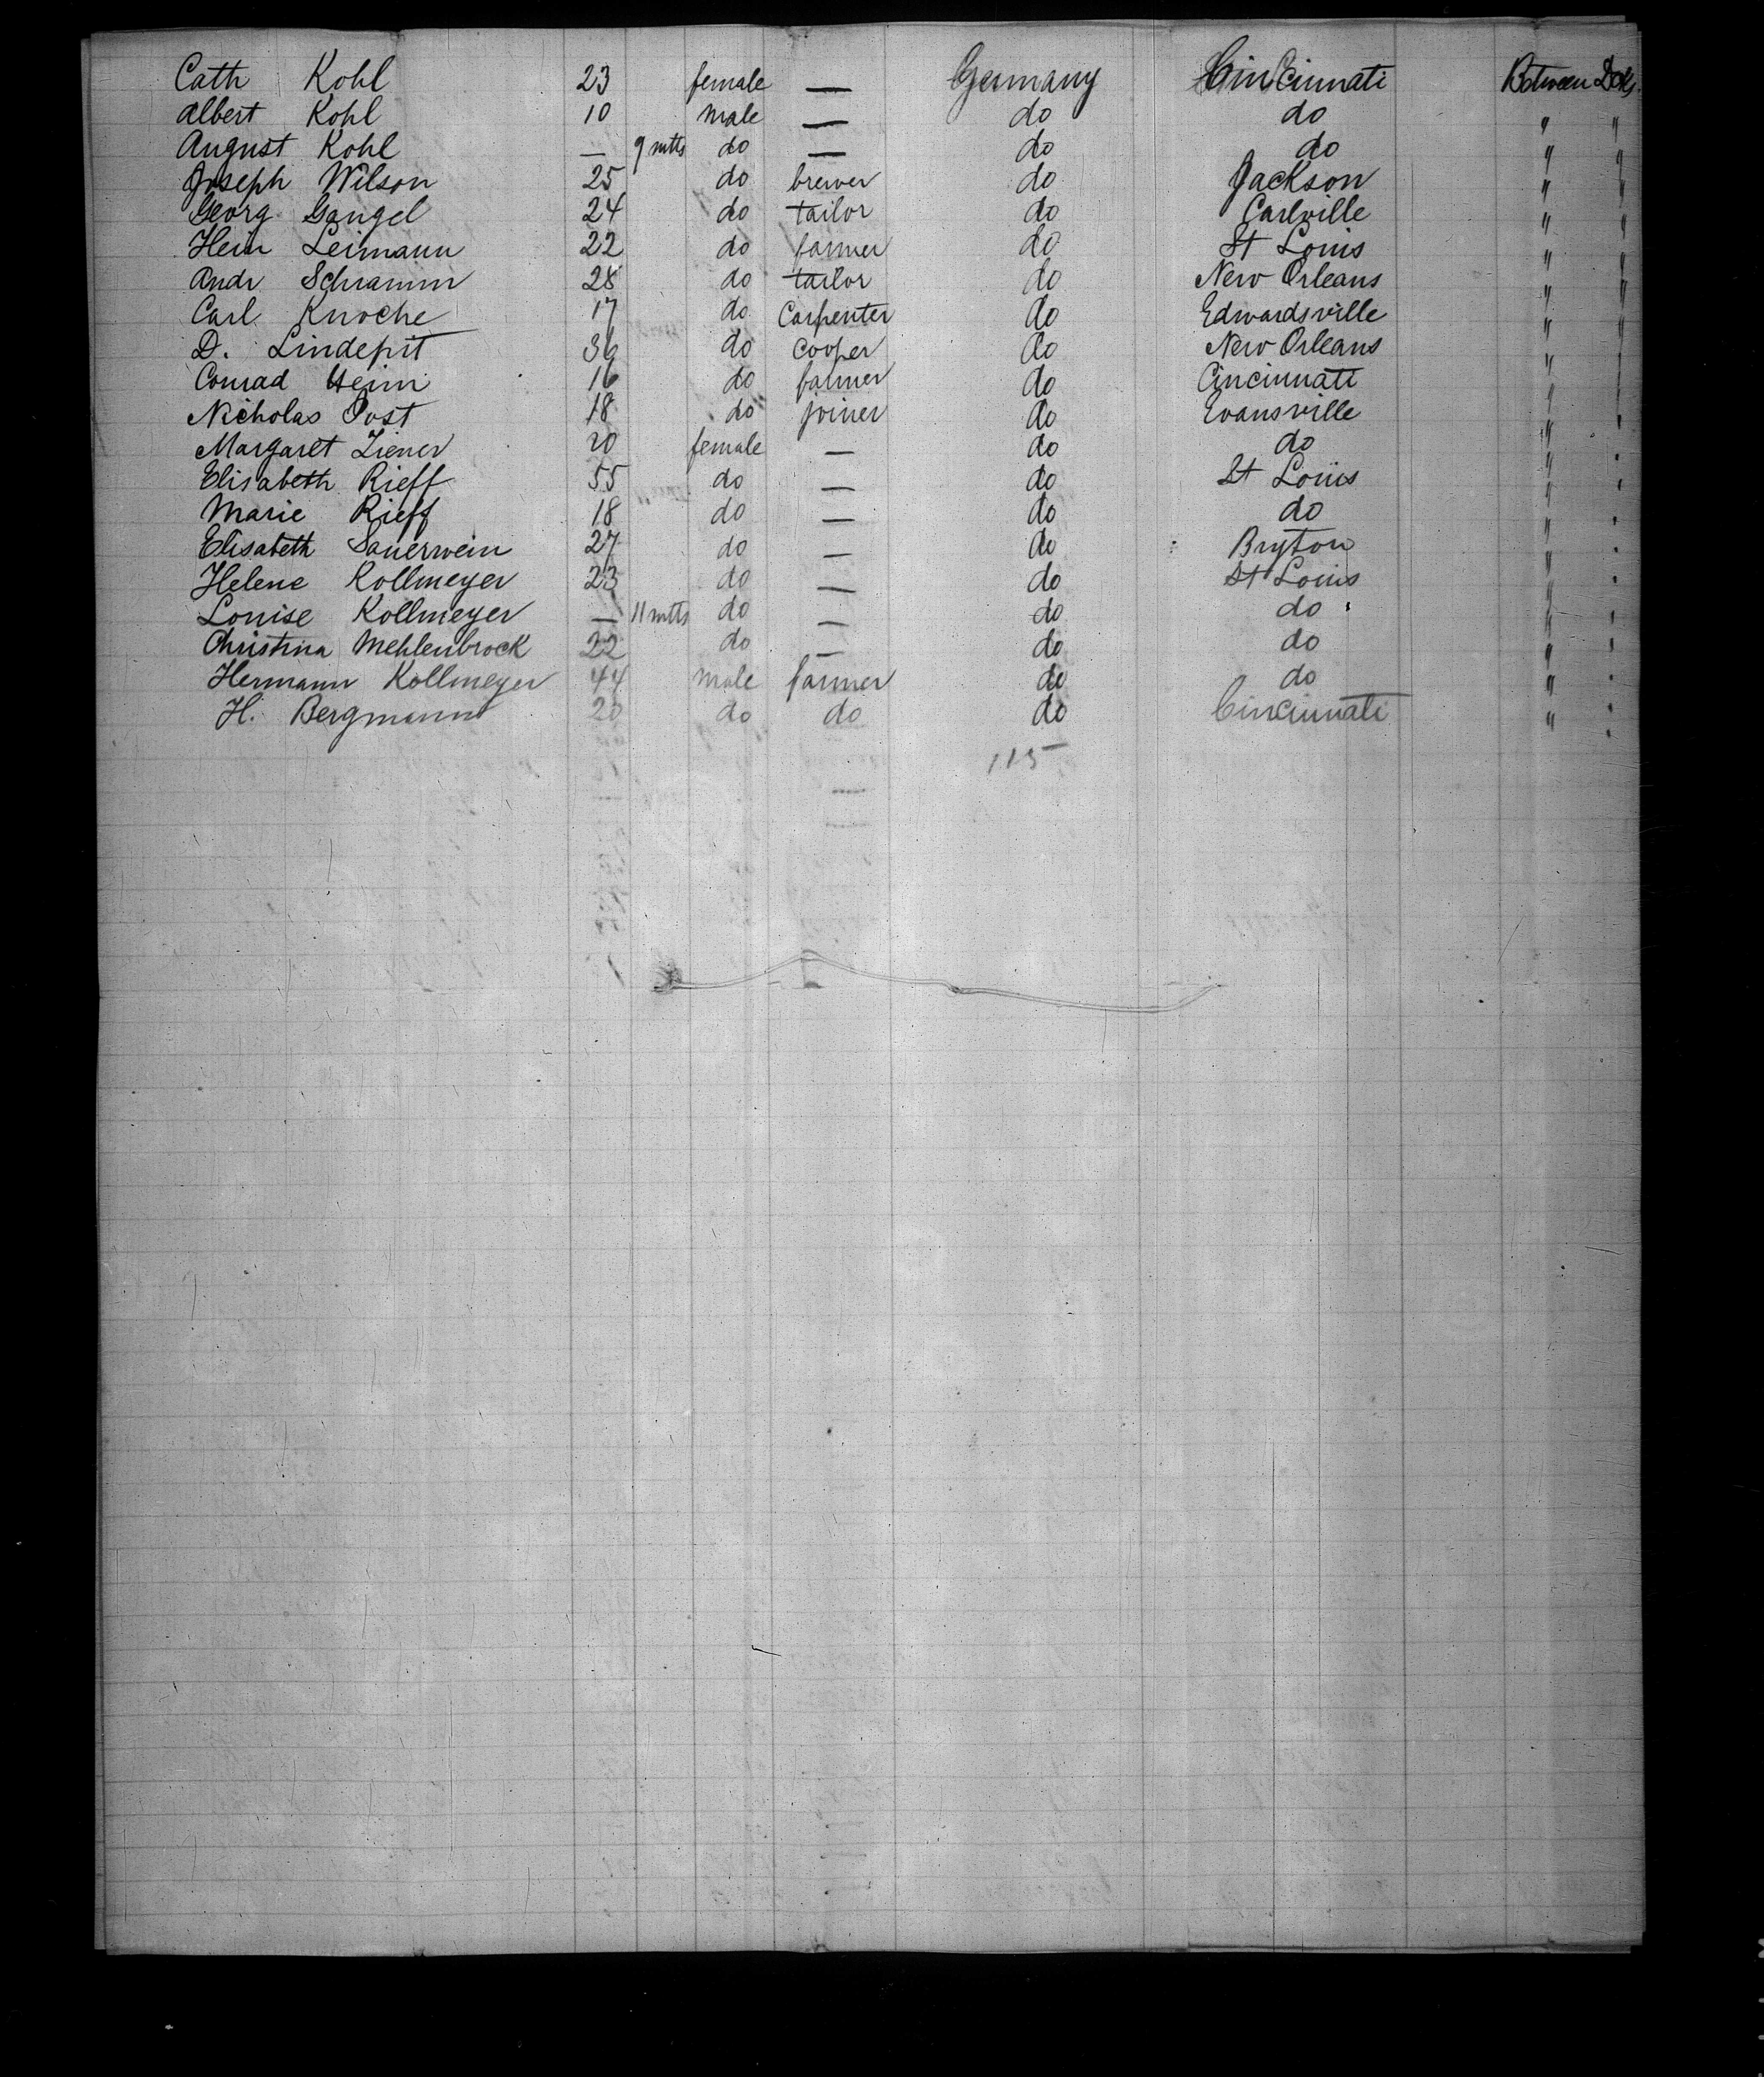 Cath Kohl 23 female — Germany Cincinnati Between Deks.
Albert Kohl 10 male — do do " "
August Kohl — 9 mths do — do do " "
Joseph Wilson 25 do brewer do Jackson " "
Georg Gangel 24 do tailor do Carlville " "
Hein Leimann 22 do farmer do St Louis " "
Andr Schramm 28 do tailor do New Orleans " "
Carl Knoche 17 do Carpenter do Edwardsville " "
D. 36 do Cooper do New Orleans " "
Conrad Heim 16 do farmer do Cincinnati " "
Nicholas Post 18 do joiner do Evansville " "
Margaret Ziener 20 female — do do " "
Elisabeth Rieff 55 do — do St Louis " "
Marie Rieff 18 do — do do " "
Elisabeth Sauerwein 27 do — do Bryton " "
Helene Kollmeyer 23 do — do St Louis " "
Louise Kollmeyer — 11 mths do — do do " "
Christina Mehlenbrock 22 do — do do " "
Hermann Kollmeyer 44 male farmer do do " "
H. Bergmann 20 do do do Cincinnati " "
115